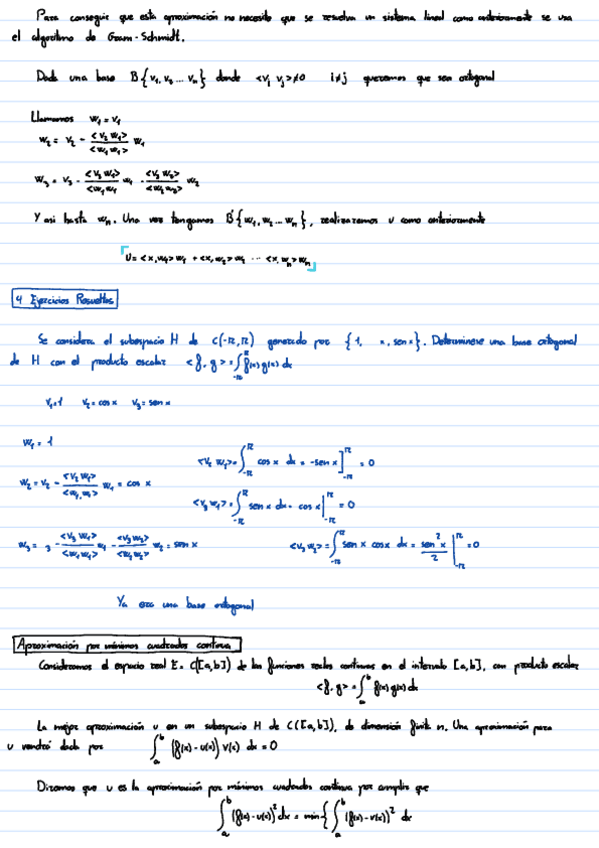 Para conseguir que esta aproximación no necesite que se resuelva un sistema lineal como anteriormente se usa
el algoritmo de Gram-Schmidt.
Dada una base B{v₁,v₂...vₙ} donde <vᵢ vⱼ>≠0 i≠j queremos que sea ortogonal
Llamamos w₁ = v₁
w₂ = v₂ - <v₂ w₁>/<w₁ w₁> w₁
w₃ = v₃ - <v₃ w₁>/<w₁ w₁> w₁ - <v₃ w₂>/<w₂ w₂> w₂
Y así hasta wₙ. Una vez tengamos B'{w₁,w₂...wₙ}, realizaremos u como anteriormente
U = <x,w₁>w₁ + <x,w₂>w₂ ... <x,wₙ>wₙ
4 Ejercicios Resueltos
Se considera el subespacio H de C(-π,π) generado por {1, x, sen x}. Determinese una base ortogonal
de H con el producto escalar <f,g> = ∫_{-π}^{π} f(x)g(x) dx
v₁=1 v₂=cos x v₃=sen x
w₁ = 1
<v₂ w₁> = ∫_{-π}^{π} cos x dx = -sen x]_{-π}^{π} = 0
w₂ = v₂ - <v₂ w₁>/<w₁,w₁> w₁ = cos x
<v₃ w₁> = ∫_{-π}^{π} sen x dx = cos x|_{-π}^{π} = 0
w₃ = 3 - <v₃ w₁>/<w₁ w₁> w₁ - <v₃ w₂>/<w₂ w₂> w₂ = sen x <v₃ w₂> = ∫_{-π}^{π} sen x cos x dx = sen² x/2 |_{-π}^{π} = 0
Ya era una base ortogonal
Aproximación por mínimos cuadrados continua
Consideramos el espacio real E = C([a,b]) de las funciones reales continuas en el intervalo [a,b], con producto escalar
<f,g> = ∫_a^b f(x)g(x) dx
La mejor aproximación u en un subespacio H de C([a,b]), de dimensión finita n. Una aproximación para
u vendrá dada por ∫_a^b (f(x)-u(x)) v(x) dx = 0
Diremos que u es la aproximación por mínimos cuadrados continua por cumplir que
∫_a^b (f(x)-u(x))² dx = min{∫_a^b (f(x)-v(x))² dx